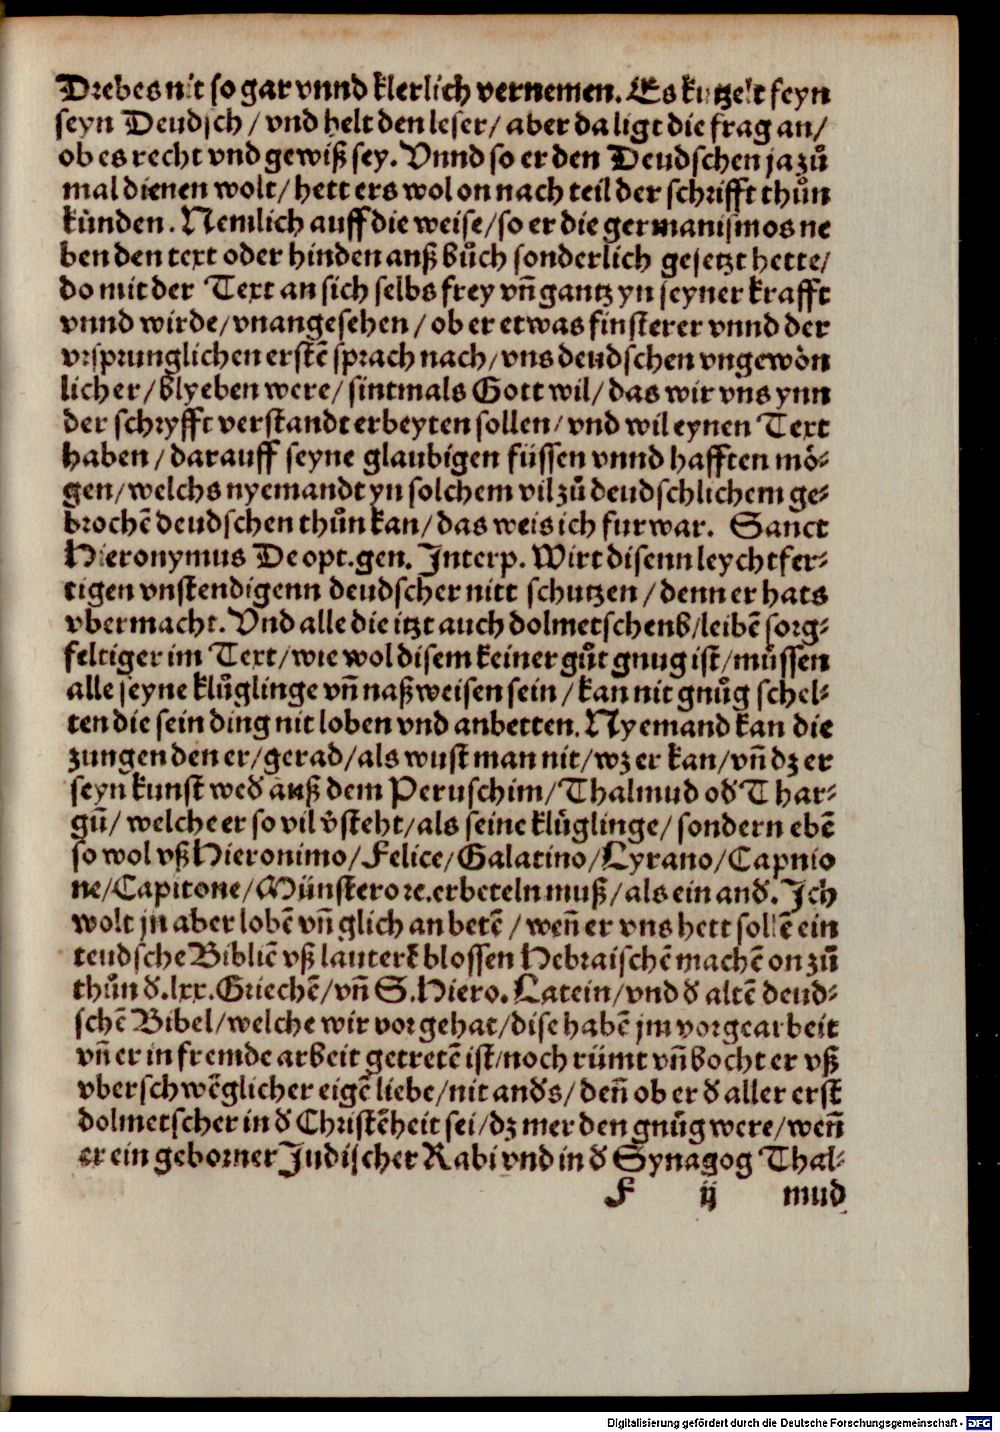 Drebes nit so gar vnnd klerlich vernemen. Es kützelt feyn
seyn Deudsch / vnd helt den leser / aber da ligt die frag an /
ob es recht vnd gewiß sey. Vnnd so er den Deudschen ja zů
mal dienen wolt / hett ers wol on nach teil der schrifft thůn
künden. Nemlich auff die weise / so er die germanismos ne
ben den text oder hinden anß bůch sonderlich gesetzt hette /
do mit der Text an sich selbs frey vñ gantz yn seyner krafft
vnnd wirde / vnangesehen / ob er etwas finsterer vnnd der
vrsprunglichen erstẽ sprach nach / vns deudschen vngewôn
licher / blyeben were / sintmals Gott wil / das wir vns ynn
der schryfft verstandt erbeyten sollen / vnd wil eynen Text
haben / darauff seyne glaubigen füssen vnnd hafften mô-
gen / welchs nyemandt yn solchem vil zů deudschlichem ge-
brochẽ deudschen thůn kan / das weis ich fur war. Sanct
Hieronymus De opt. gen. Interp. Wirt disenn leychtfer-
tigen vnstendigenn deudscher nitt schutzen / denn er hats
vbermacht. Vnd alle die itzt auch dolmetschens / leibẽ sorg-
feltiger im Text / wie wol disem keiner gůt gnug ist / můssen
alle seyne klůglinge vñ naßweisen sein / kan nit gnůg schel-
ten die sein ding nit loben vnd anbetten. Nyemand kan die
zungen den er / gerad / als wust man nit / wz er kan / vñ dz er
seyn kunst wed̕ auß dem Peruschim / Thalmud od̕ Thar-
gũ / welche er so vil v̂steht / als seine klůglinge / sondern ebẽ
so wol vß Hieronimo / Felice / Galatino / Lyrano / Capnio
ne / Capitone / Münstero ꝛc. erbeteln muß / als ein and̕. Ich
wolt jn aber lobẽ vñ glich an betẽ / weñ er vns hett sollẽ ein
teudsche Bibliẽ vß lauterk̕ blossen Hebraischẽ machẽ on zũ
thůn d̕. lxx. Griechẽ / vñ S. Hiero. Latein / vnd d̕ altẽ deud-
schẽ Bibel / welche wir vor gehat / dise habẽ jm vorgearbeit
vñ er in fremde arbeit getretẽ ist / noch rümt vñ bocht er vß
vberschwẽglicher eigẽ liebe / nit and̕s / deñ ob er d̕ aller erst
dolmetscher in d̕ Christẽheit sei / dz mer den gnůg were / weñ
er ein geborner Judischer Rabi vnd in d̕ Synagog Thal-
F ij mud
Digitalisierung gefördert durch die Deutsche Forschungsgemeinschaft - DFG